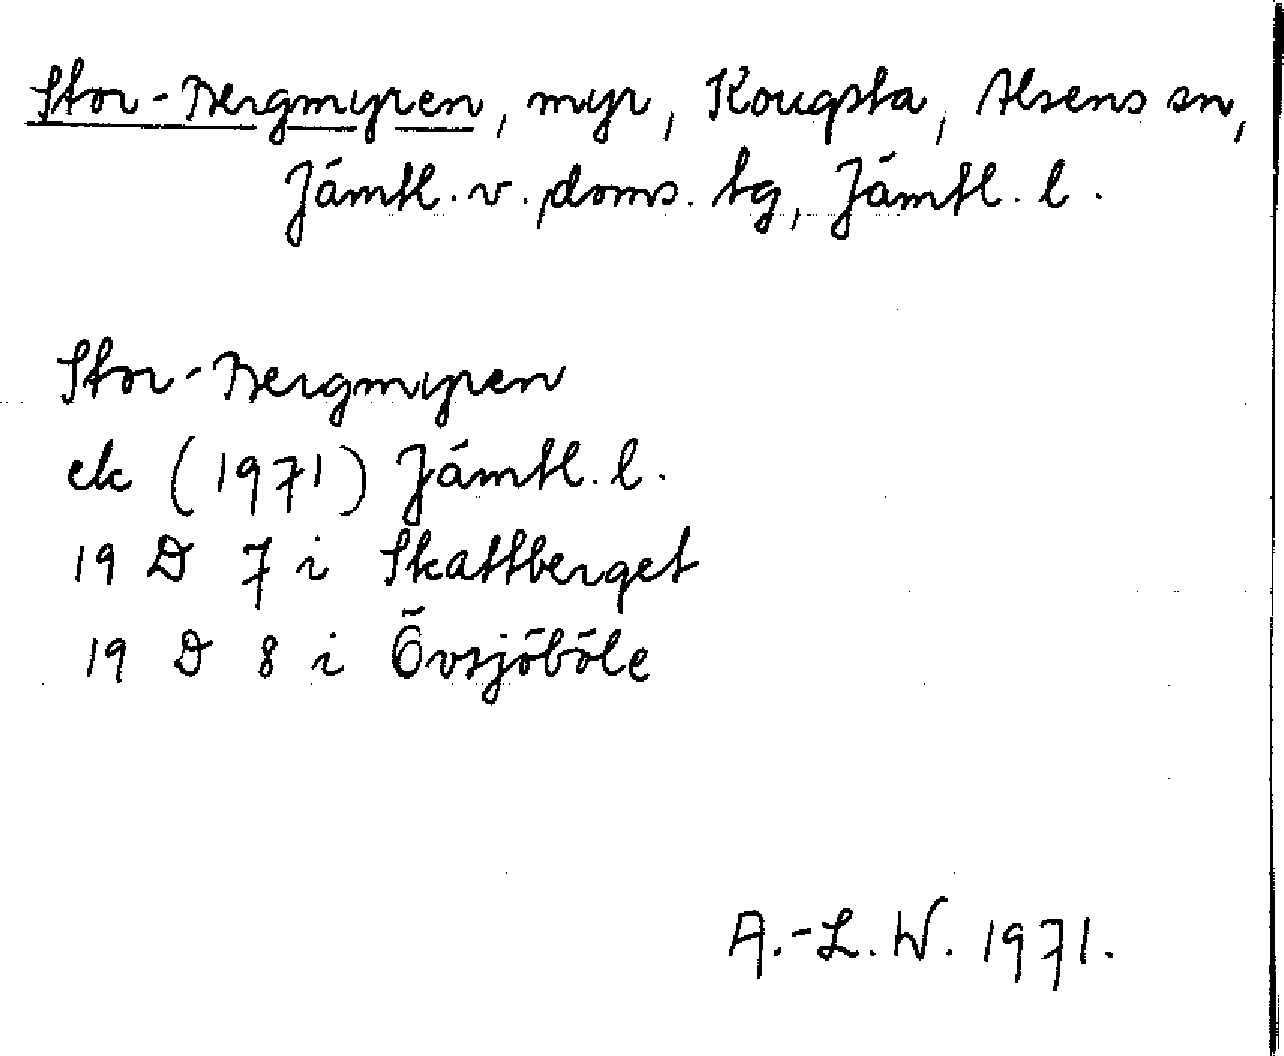 Stor-Bergmyren, myr, Kougsta, Alsens sn,
Jämtl. v. doms. tg, Jämtl. l.
Stor-Bergmyren
ek (1971) Jämtl. l.
19 D 7 i Skattberget
19 D 8 i Övsjöböle
A.-L. W. 1971.